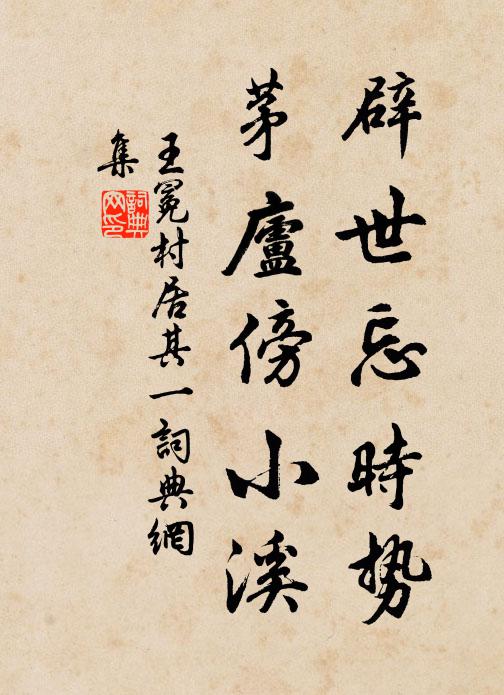 辟世忘時势
茅廬傍小溪
王冕村居其一詞典網
集
詞典
网印